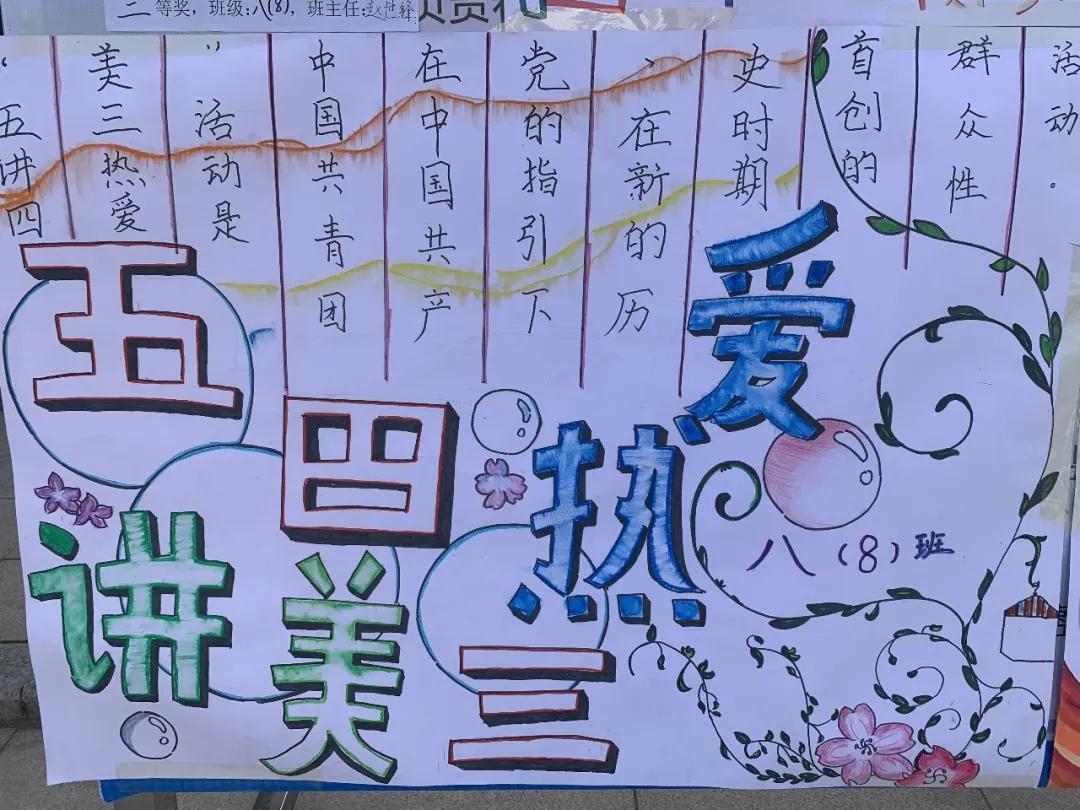 二等奖，班级:八(8)，班主任:
“五讲四
美三热爱
”活动是
中国共青团
在中国共产
党的指引下
、在新的历
史时期
首创的
群众性
活动。
五讲
四美
三热爱
八（8）班